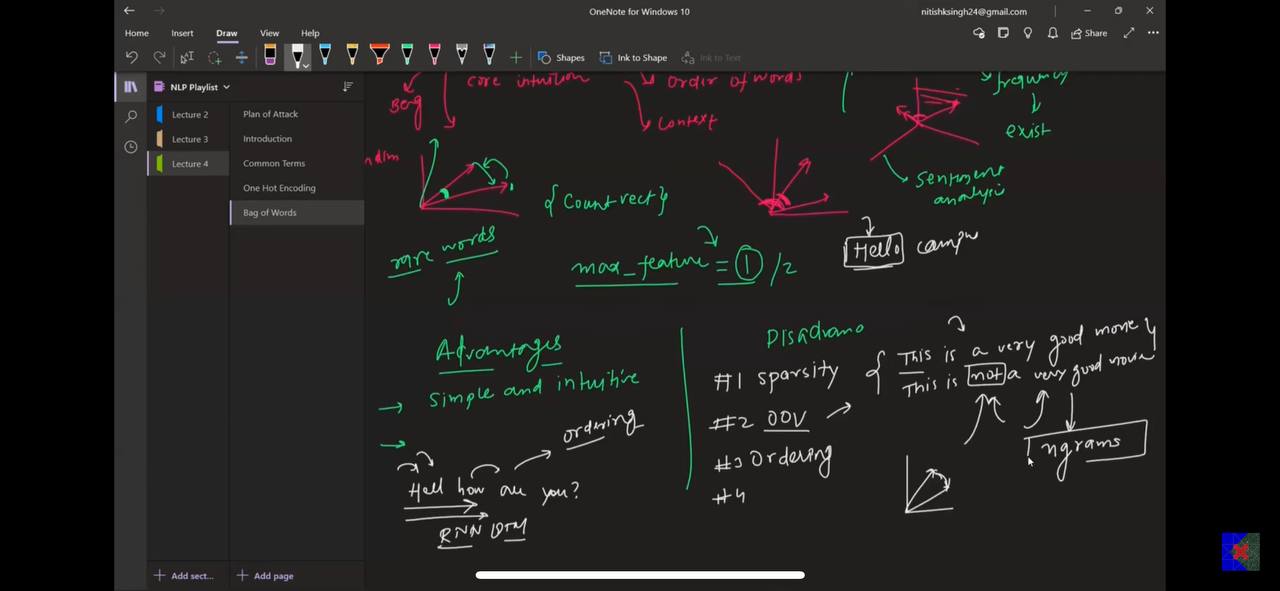 OneNote for Windows 10
nitishksingh24@gmail.com
Home Insert Draw View Help
Share
Shapes
Ink to Shape
Ink to Text
NLP Playlist
Lecture 2
Lecture 3
Lecture 4
Plan of Attack
Introduction
Common Terms
One Hot Encoding
Bag of Words
Add sect...
Add page
core intuition
order of words
frequency
context
exist
ndim
Sentiment
analysis
{Countvect}
rare words
max_feature = 1 /2
Hello
Advantages
Simple and intuitive
ordering
Hell how are you?
RNN
#1 Sparsity
#2 OOV
#3 Ordering
#4
{ This is a very good movie }
This is not a very good movie
ngrams